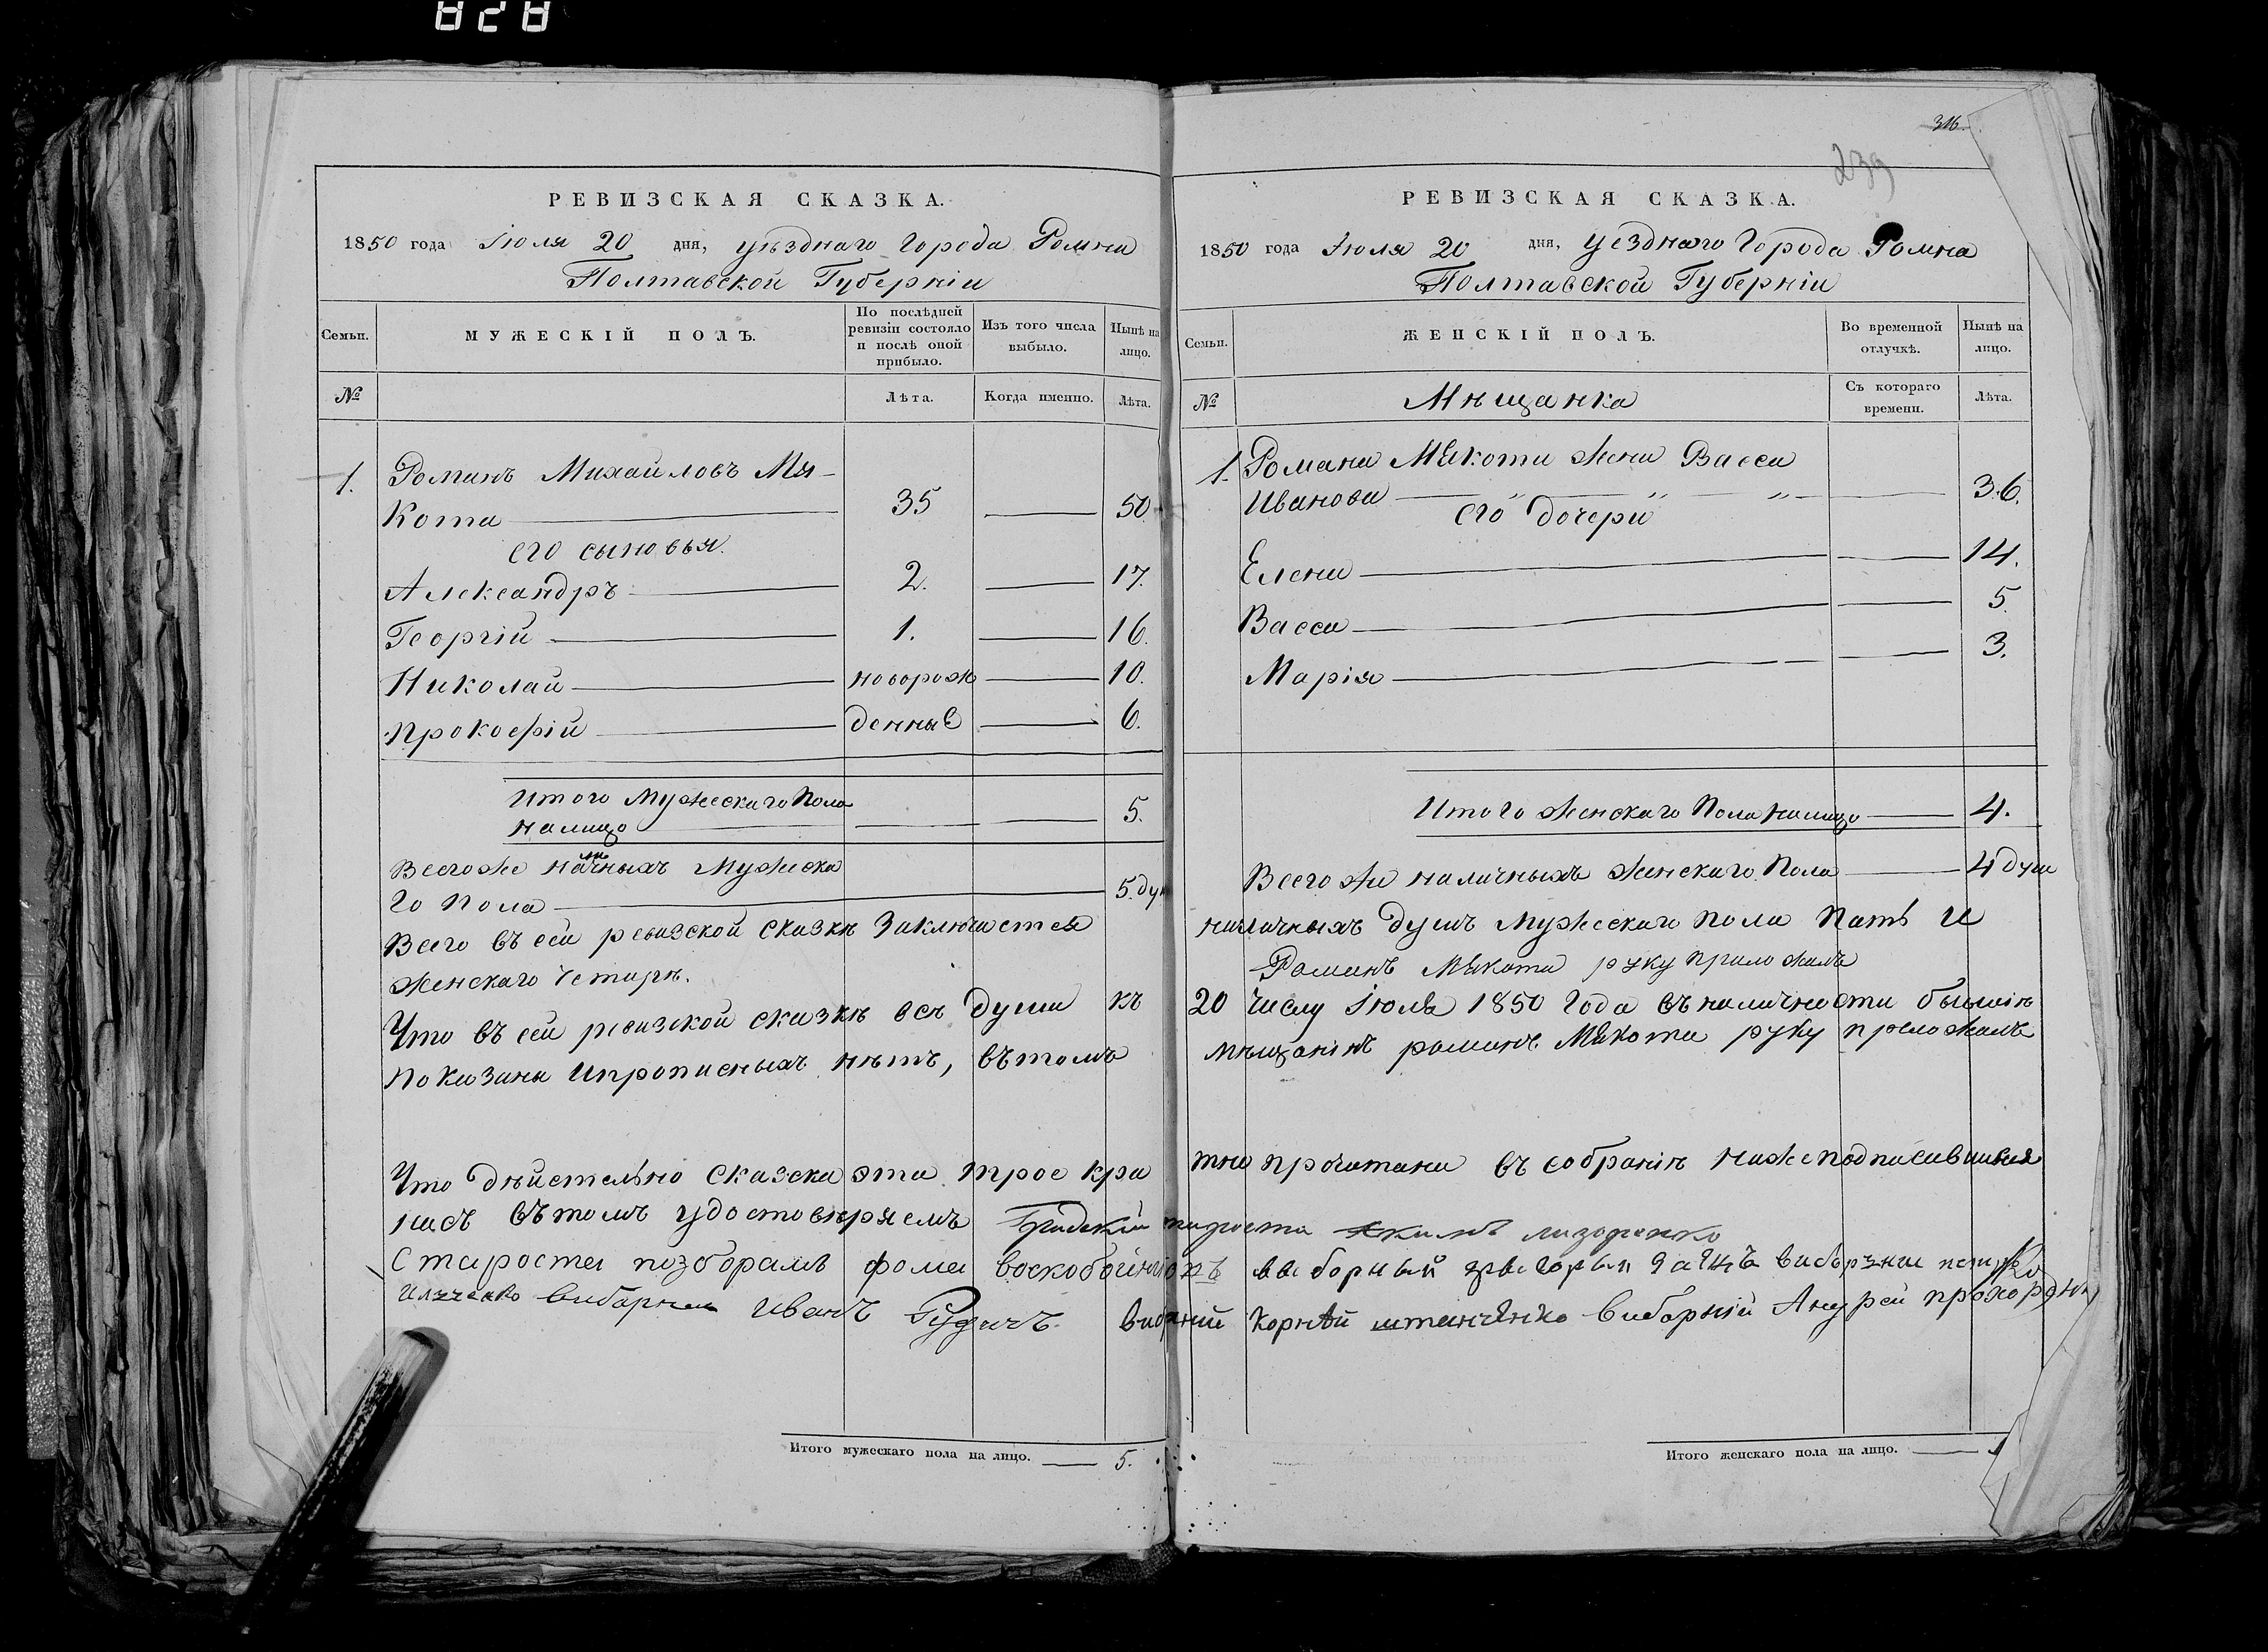 828
РЕВИЗСКАЯ СКАЗКА.
1850 года Июля 20 дня, уѣзднаго Города Ромна
Полтавской Губерніи
Семьи.
МУЖЕСКІЙ ПОЛЪ.
По послѣдней ревизіи состояло и послѣ оной прибыло.
Изъ того числа выбыло.
Нынѣ на лицо.
№
Лѣта.
Когда именно.
Лѣта.
1. Романъ Михайловъ Мя-
кота 35 50
его сыновья.
Александръ 2. 17.
Георгій 1. 16.
Николай новорож 10.
Прокофій денные 6.
Итого Мужескаго Пола
налицо 5.
Всегоже наличныхъ Мужска
го Пола 5. ду
Всего въ сей ревизской Сказкѣ Заключается
женскаго Четыри.
Что въ сей ревизской сказкѣ всѣ души къ
показаны ипрописныхъ нѣтъ, вътомъ
Что дѣйстельно Сказска эта трое кра
насъ вътомъ удостовѣряемъ Градскій
Староста позборамъ фома воскобойниковъ
Илченко виборний иванъ Рудичъ виборний
Итого мужескаго пола на лицо. 5.
316.
239
РЕВИЗСКАЯ СКАЗКА.
1850 года Июля 20 дня, уезднаго Города Ромна
Полтавской Губерніи
Семьи.
ЖЕНСКІЙ ПОЛЪ.
Во временной отлучкѣ.
Нынѣ на лицо.
№
Мѣщанка
Съ котораго времени.
Лѣта.
1. Романа Мякоты жена Васса
Иванова 36.
его дочери
Елена 14.
Васса 5.
Марія 3.
Итого женскаго Пола налицо 4.
Всего же наличныхъ женскаго Пола 4 душ
наличныхъ душъ Мужескаго пола Пять и
Романъ Мякота руку приложилъ
20 числу Июля 1850 Года въ наличности бывшія
мѣщанінъ романъ Мякота руку преложилъ
тно прочитана въ собраніи нижеподписавшихся
староста
виборный
Корнѣй штанченко виборній Андрей
Итого женскаго пола на лицо.